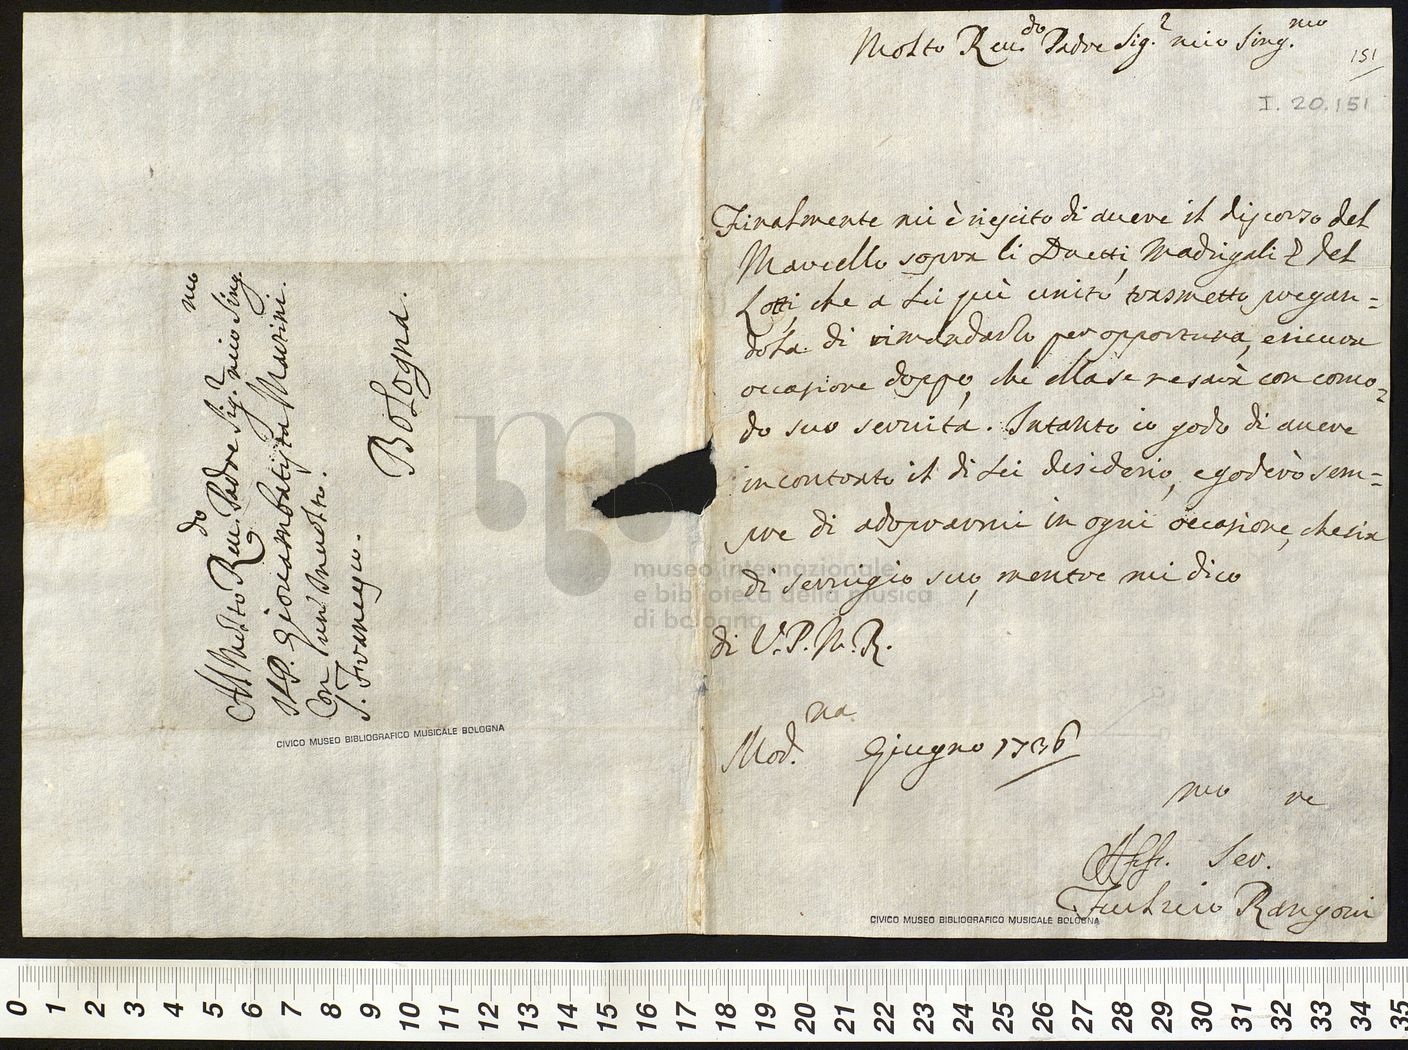 Al Molto Rev.do Padre Sig.r mio Sing.mo
Il P. Giovambatista Martini.
Con Min.
S. Francesco.
Bologna.
CIVICO MUSEO BIBLIOGRAFICO MUSICALE BOLOGNA
Molto Rev.do Padre Sig.r mio Sing.mo
151
I. 20.151
Finalmente mi è riescito di avere il discorso del
Marcello sopra li Duetti, Madrigali & del
Lotti, che a Lei quì unito trasmetto, pregan=
dola di rimandarlo per opportuna, e sicura
occasione doppo, che ella se ne sarà con como=
do suo servita. Intanto io godo di avere
incontrato il di Lei desiderio, e goderò sem=
pre di adoprarmi in ogni occasione, che sia
di servigio suo, mentre mi dico
di V. P. M. R.
Mod.na Giugno 1736
Aff.mo Ser.re
Rangoni
CIVICO MUSEO BIBLIOGRAFICO MUSICALE BOLOGNA
museo internazionale
e biblioteca della musica
di bologna
0 1 2 3 4 5 6 7 8 9 10 11 12 13 14 15 16 17 18 19 20 21 22 23 24 25 26 27 28 29 30 31 32 33 34 35